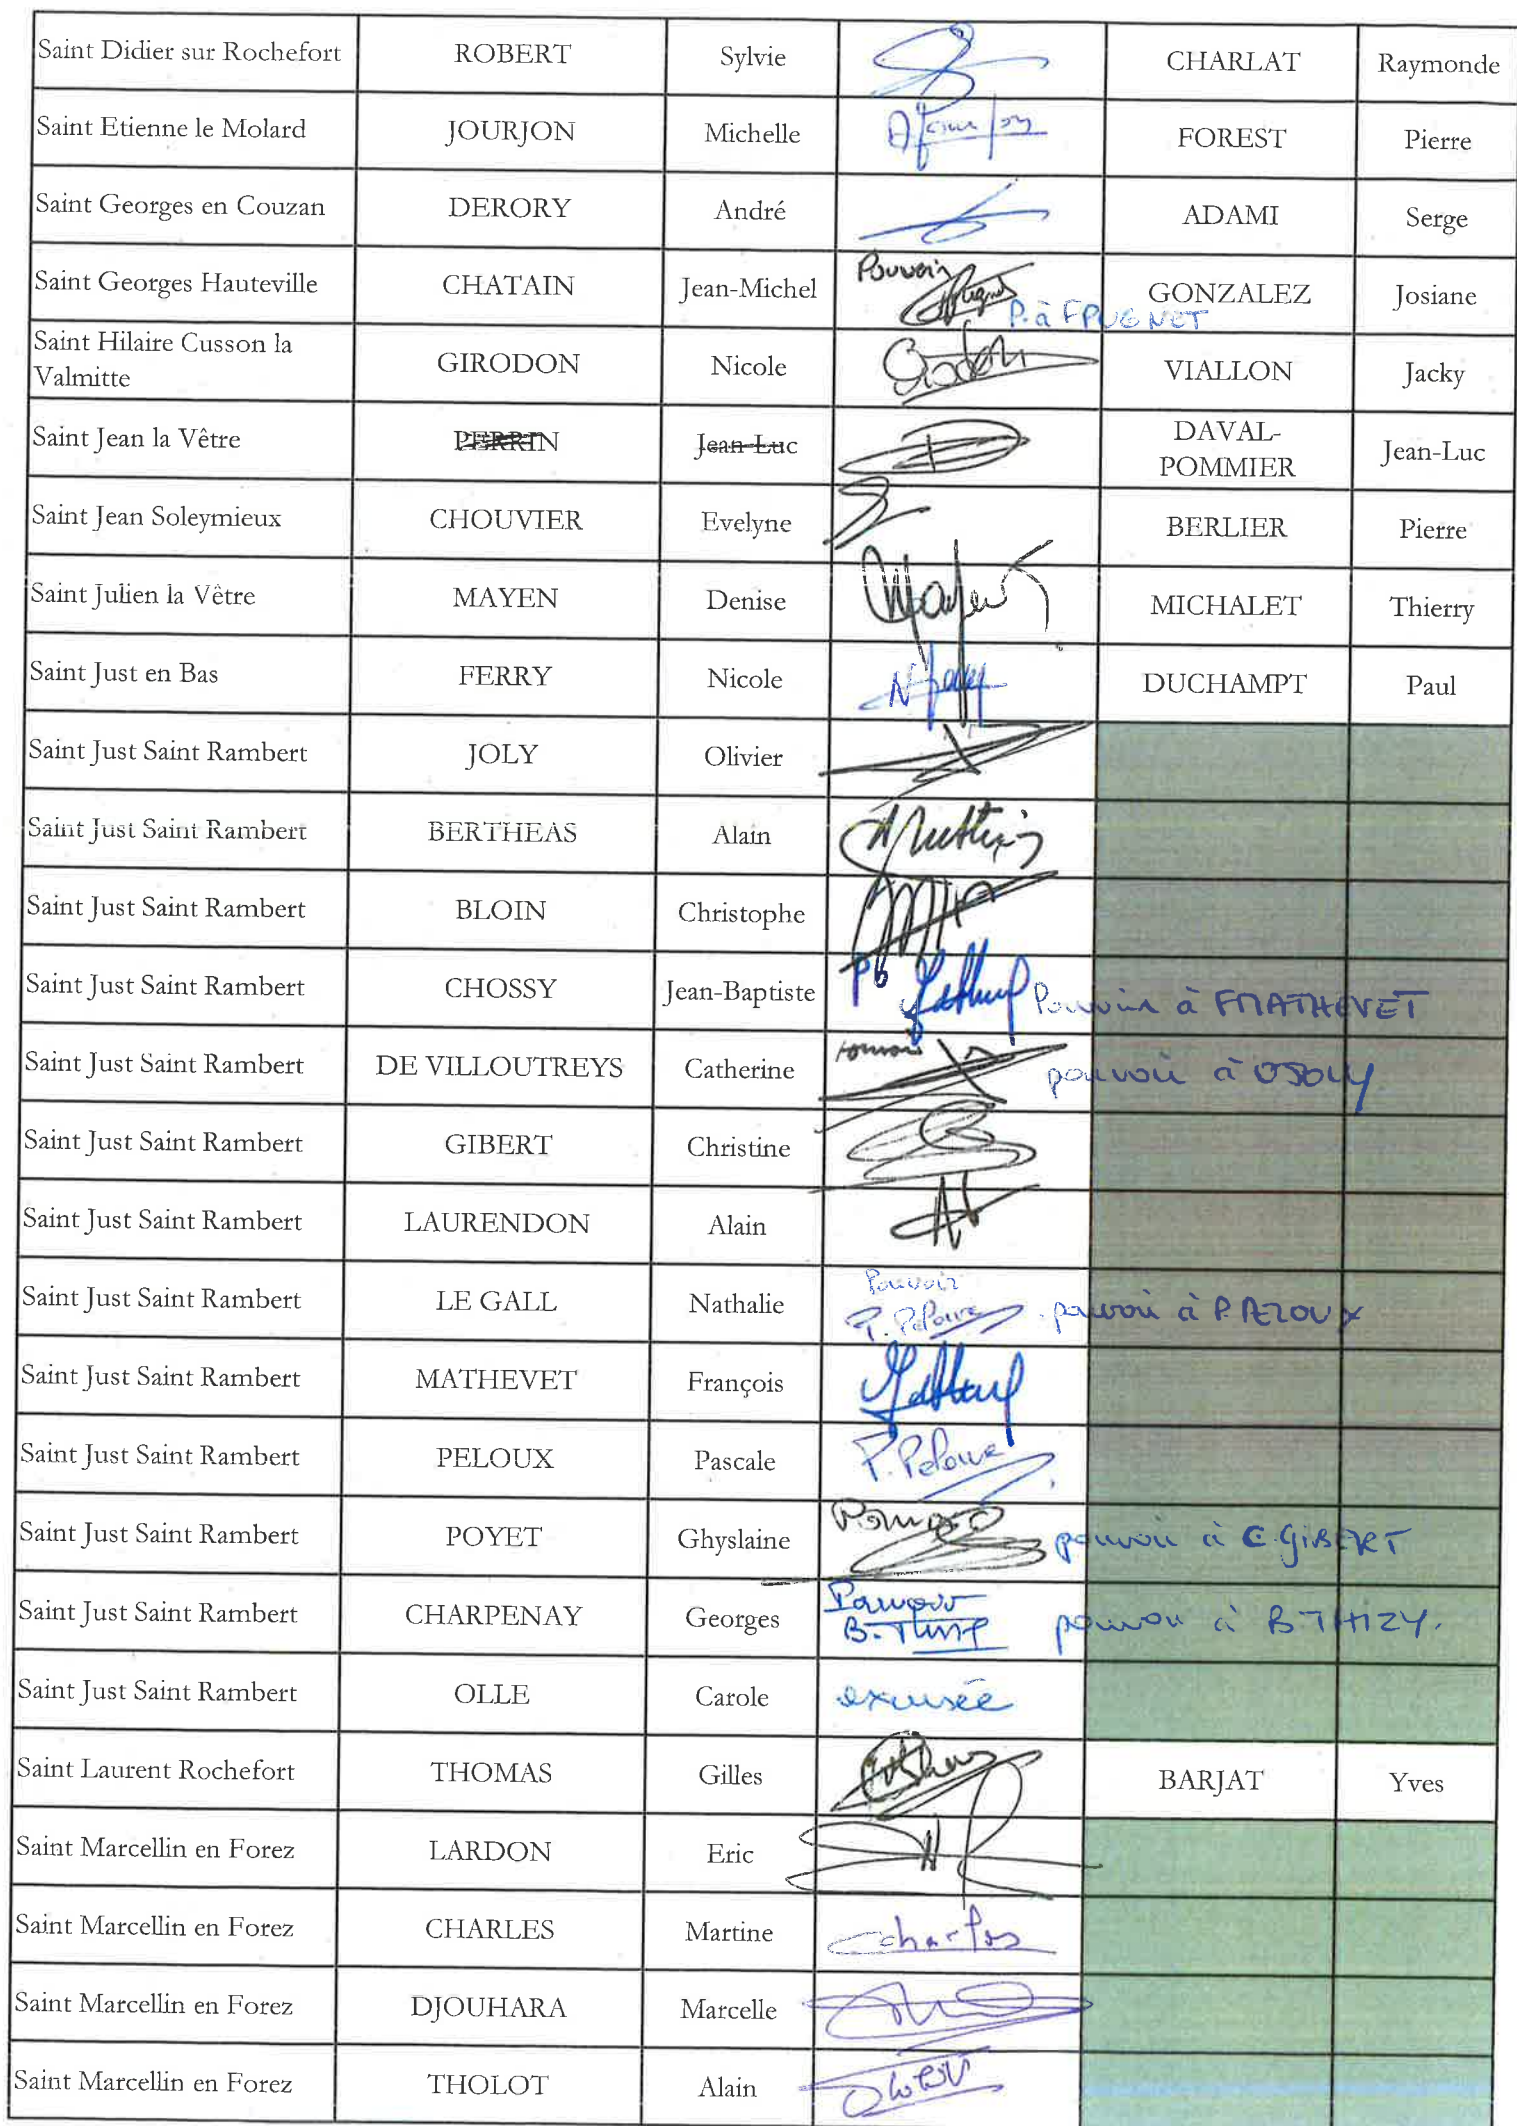 Saint Didier sur Rochefort ROBERT Sylvie CHARLAT Raymonde
Saint Etienne le Molard JOURJON Michelle FOREST Pierre
Saint Georges en Couzan DERORY André ADAMI Serge
Saint Georges Hauteville CHATAIN Jean-Michel Pouvoir P. à F PUGNET GONZALEZ Josiane
Saint Hilaire Cusson la
Valmitte GIRODON Nicole Girodon VIALLON Jacky
Saint Jean la Vêtre PERRIN Jean-Luc DAVAL-
POMMIER Jean-Luc
Saint Jean Soleymieux CHOUVIER Evelyne BERLIER Pierre
Saint Julien la Vêtre MAYEN Denise MICHALET Thierry
Saint Just en Bas FERRY Nicole DUCHAMPT Paul
Saint Just Saint Rambert JOLY Olivier
Saint Just Saint Rambert BERTHEAS Alain
Saint Just Saint Rambert BLOIN Christophe
Saint Just Saint Rambert CHOSSY Jean-Baptiste Pouvoir à F MATHEVET
Saint Just Saint Rambert DE VILLOUTREYS Catherine pouvoir pouvoir à O JOLY
Saint Just Saint Rambert GIBERT Christine
Saint Just Saint Rambert LAURENDON Alain
Saint Just Saint Rambert LE GALL Nathalie Pouvoir P. Peloux pouvoir à P.
Saint Just Saint Rambert MATHEVET François
Saint Just Saint Rambert PELOUX Pascale P. Peloux
Saint Just Saint Rambert POYET Ghyslaine Pouvoir pouvoir à C. GIBERT
Saint Just Saint Rambert CHARPENAY Georges Pouvoir B. Thizy pouvoir à B. THIZY.
Saint Just Saint Rambert OLLE Carole excusée
Saint Laurent Rochefort THOMAS Gilles BARJAT Yves
Saint Marcellin en Forez LARDON Eric
Saint Marcellin en Forez CHARLES Martine Charles
Saint Marcellin en Forez DJOUHARA Marcelle
Saint Marcellin en Forez THOLOT Alain